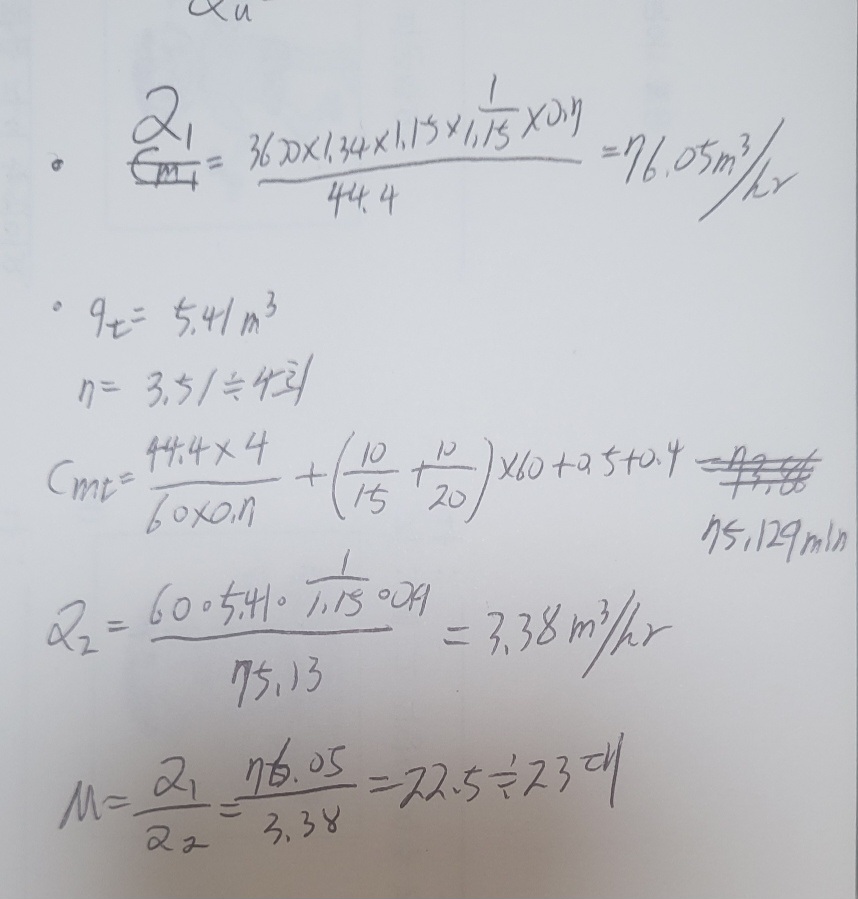 Qu
• Q₁ = (3600×1.34×1.15×1/1.15×0.7)/44.4 = 76.05m³/hr
• qt = 5.41m³
n = 3.51 ≒ 4회
Cmt = (44.4×4)/(60×0.7) + (10/15 + 10/20)×60+0.5+0.4
75.129min
Q₂ = (60∘5.41∘1/1.15∘0.9)/75.13 = 3.38m³/hr
M = Q₁/Q₂ = 76.05/3.38 = 22.5 ≒ 23대